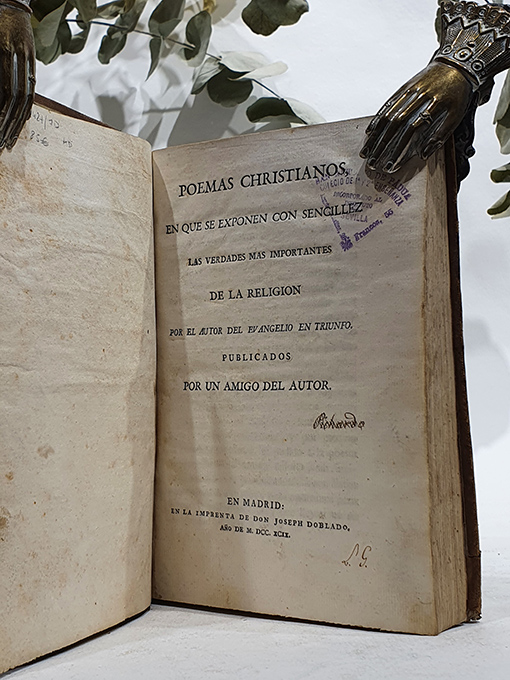 POEMAS CHRISTIANOS,
EN QUE SE EXPONEN CON SENCILLEZ
LAS VERDADES MAS IMPORTANTES
DE LA RELIGION
POR EL AUTOR DEL EVANGELIO EN TRIUNFO.
PUBLICADOS
POR UN AMIGO DEL AUTOR.
EN MADRID:
EN LA IMPRENTA DE DON JOSEPH DOBLADO,
AÑO DE M. DCC. XCIX.
INCORPORADO AL
SEVILLA
San Francos, 50